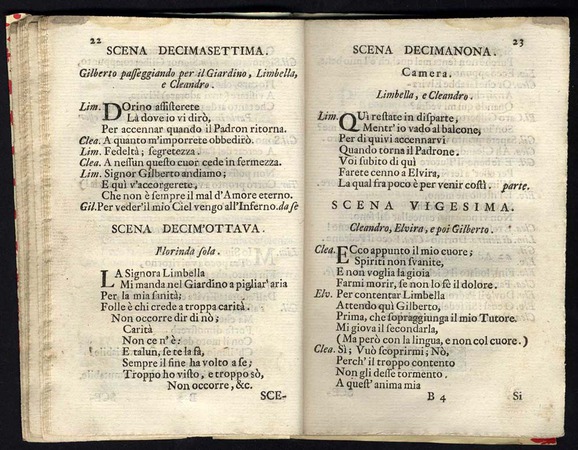 22
SCENA DECIMASETTIMA.
Gilberto passeggiando per il Giardino, Limbella,
e Cleandro.
Lim. Dorino assisterete
Là dove io vi dirò,
Per accennar quando il Padron ritorna.
Clea. A quanto m'imporrete obbedirò.
Lim. Fedeltà; segretezza.
Clea. A nessun questo cuor cede in fermezza.
Lim. Signor Gilberto andiamo;
E quì v'accorgerete,
Che non è sempre il mal d'Amore eterno.
Gil. Per veder'il mio Ciel vengo all'Inferno. da se
SCENA DECIM'OTTAVA.
Florinda sola.
LA Signora Limbella
Mi manda nel Giardino a pigliar'aria
Per la mia sanità;
Folle è chi crede a troppa carità.
Non occorre dir di nò;
Carità
Non ce n'è:
E talun, se te la fà,
Sempre il fine ha volto a se;
Troppo ho visto, e troppo sò,
Non occorre, &c.
SCE-
23
SCENA DECIMANONA.
Camera.
Limbella, e Cleandro.
Lim. QUì restate in disparte,
Mentr'io vado al balcone,
Per di quivi accennarvi
Quando torna il Padrone.
Voi subito di quì
Farete cenno a Elvira,
La qual fra poco è per venir costì. parte.
SCENA VIGESIMA.
Cleandro, Elvira, e poi Gilberto.
Clea. ECco appunto il mio cuore;
Spiriti non svanite,
E non voglia la gioia
Farmi morir, se non lo fè il dolore.
Elv. Per contentar Limbella
Attendo quì Gilberto,
Prima, che sopraggiunga il mio Tutore.
Mi giova il secondarla,
(Ma però con la lingua, e non col cuore.)
Clea. Sì; Vuò scoprirmi; Nò,
Perch'il troppo contento
Non gli desse tormento.
A quest'anima mia
B 4
Si